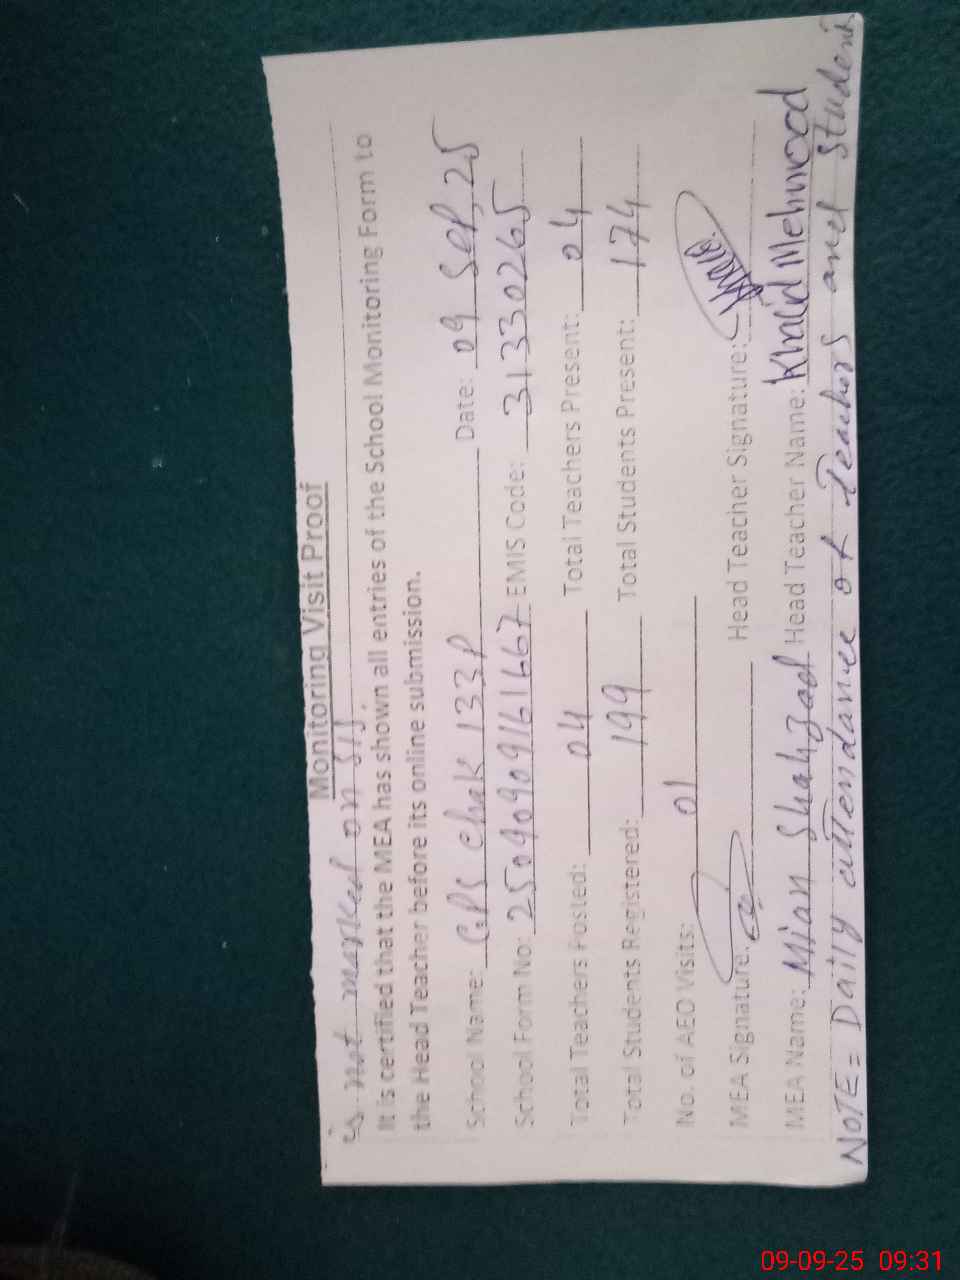 Monitoring Visit Proof
is not marked on SIS.
It is certified that the MEA has shown all entries of the School Monitoring Form to
the Head Teacher before its online submission.
School Name: GPS chak 133P Date: 09 Sep, 25
School Form No: 2509090916 1667 EMIS Code: 31330265
Total Teachers Posted: 04 Total Teachers Present: 04
Total Students Registered: 199 Total Students Present: 174
No. of AEO Visits: 01
MEA Signature: Head Teacher Signature:
MEA Name: Mian Shahzad Head Teacher Name: Khalid Mehmood
NOTE = Daily attendance of Teachers and Students
09-09-25 09:31